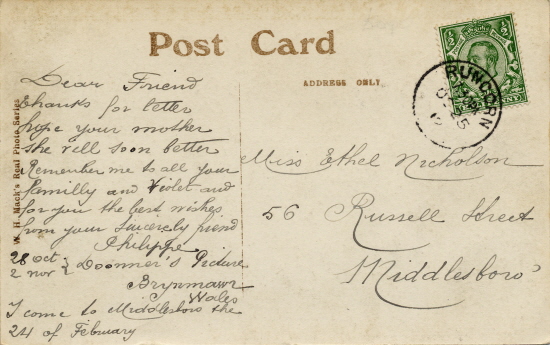 Post Card
ADDRESS ONLY
W. H. Mack's Real Photo Series
Dear Friend
thanks for letter
hope your mother
she rill soon better
Remember me to all your
familly and Violet and
for you the best wishes
from your sincerely friend
Philippe
28 oct
2 nov } Doonner's Picture
Brynmawr
Wales
I come to Middlesboro the
24 of Februory
Miss Ethel Nicholson
56 Russell Street
Middlesboro'
RUNCORN
OC 25
12